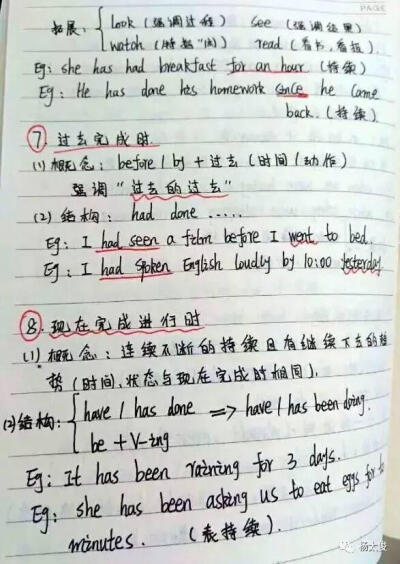 PAGE
拓展: look (强调过程) see (强调结果)
watch (特指"闭) read (看书,看报).
Eg: she has had breakfast for an hour (持续)
Eg: He has done his homework since he came
back. (持续)
⑦. 过去完成时.
(1) 概念: before / by + 过去 (时间/动作)
强调 "过去的过去"
(2) 结构: had done .....
Eg: I had seen a film before I went to bed.
Eg: I had spoken English loudly by 10:00 yesterday
⑧. 现在完成进行时
(1) 概念: 连续不断的持续且有继续下去的趋
势 (时间,状态与现在完成时相同).
(2) 结构: have / has done => have / has been doing.
be + V-ing
Eg: It has been raining for 3 days.
Eg: she has been asking us to eat eggs for to
minutes. (表持续).
杨太俊